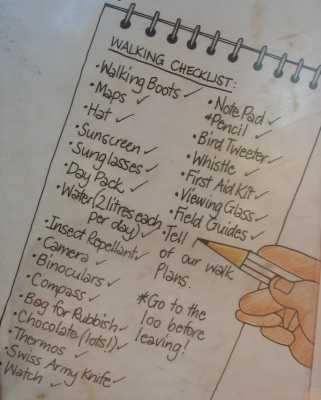 WALKING CHECKLIST:
• Walking Boots ✓
• Maps ✓
• Hat ✓
• Sunscreen ✓
• Sunglasses ✓
• Day Pack ✓
• Water (2 litres each
per day) ✓
• Insect Repellant ✓
• Camera ✓
• Binoculars ✓
• Compass ✓
• Bag for Rubbish ✓
• Chocolate (lots!) ✓
• Thermos ✓
• Swiss Army Knife ✓
• Watch ✓
• Note Pad ✓
& Pencil ✓
• Bird Tweeter ✓
• Whistle ✓
• First Aid Kit ✓
• Viewing Glass ✓
• Field Guides ✓
• Tell
of our walk
Plans.
*Go to the
loo before
leaving!